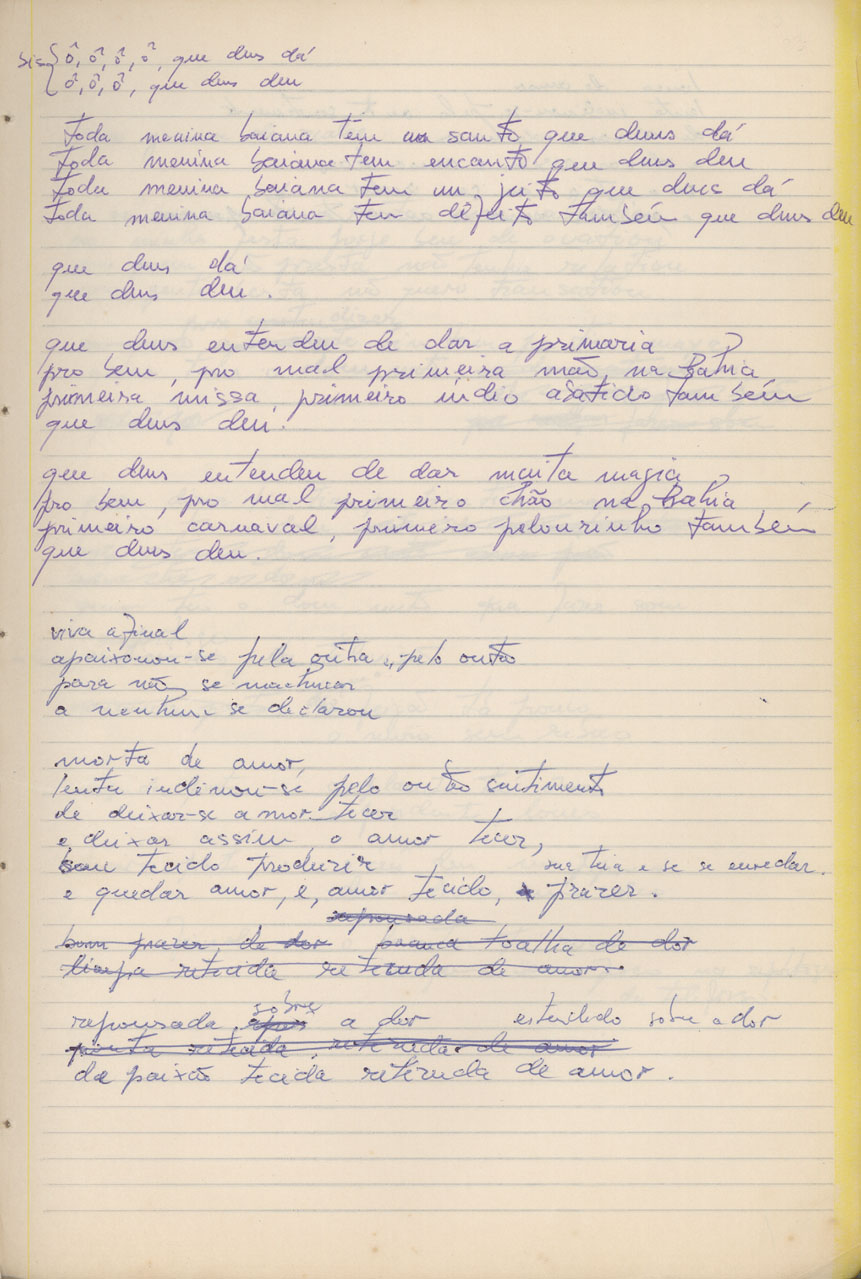 bis { ô, ô, ô, ô, que deus dá
ô, ô, ô, que deus deu
toda menina baiana tem um santo que deus dá
toda menina baiana tem encanto que deus deu
toda menina baiana tem um jeito que deus dá
toda menina baiana tem defeito também que deus deu
que deus dá
que deus deu.
que deus entendeu de dar a primazia
pro bem, pro mal primeira mão, na Bahia
primeira missa, primeiro índio abatido também
que deus deu.
que deus entendeu de dar muita magia
pro bem, pro mal primeiro chão na Bahia
primeiro carnaval, primeiro pelourinho também
que deus deu.
viva afinal
apaixonou-se pela outra e, pelo outro
para não se machucar
a nenhum se declarou
morta de amor,
lenta inclinou-se pelo outro sentimento
de deixar-se amor tecer
e, deixar assim, o amor tecer,
bom tecido produzir sua teia e se se enredar.
e quedar amor, e, amor tecido, prazer.
repousada
bom prazer, de dor branca toalha de dor
limpa retecida retecida de amor.
repousada sobre a dor estendido sobre a dor
retecida, de amor
da paixão tecida retecida de amor.